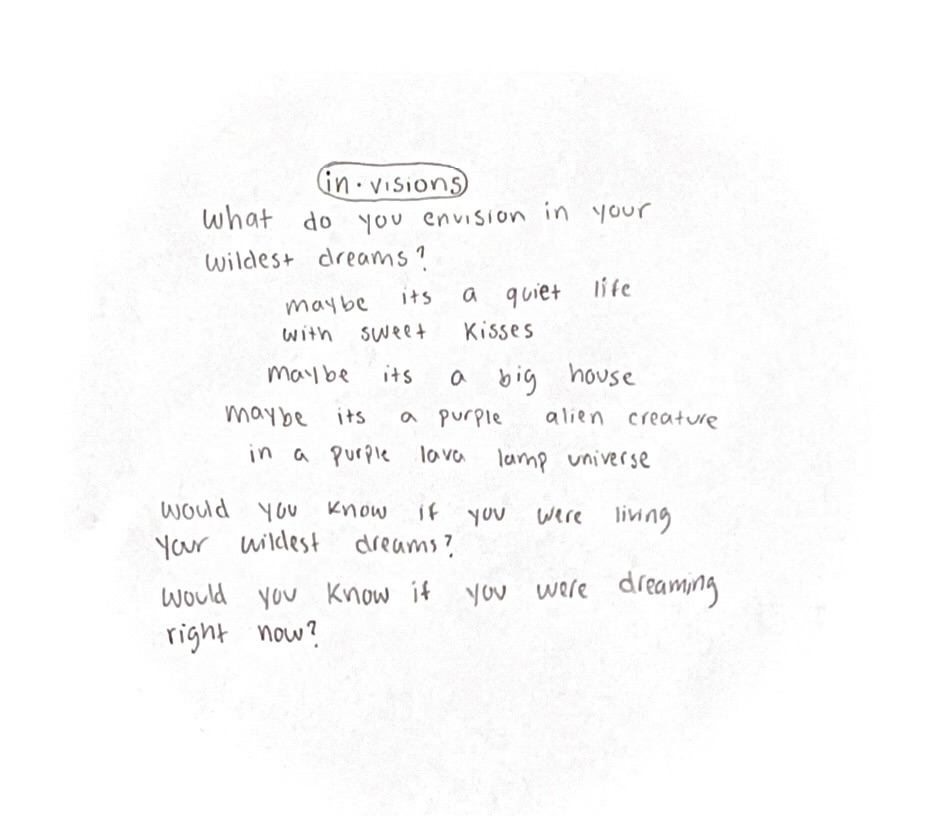 in · visions
What do you envision in your
wildest dreams?
maybe its a quiet life
with sweet kisses
maybe its a big house
maybe its a purple alien creature
in a purple lava lamp universe
would you know if you were living
your wildest dreams?
would you know if you were dreaming
right now?